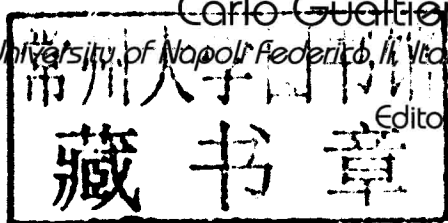 Carlo Gualtier
University of Napoli Federico II, Ita
常州大学图书馆
Edito
藏书章